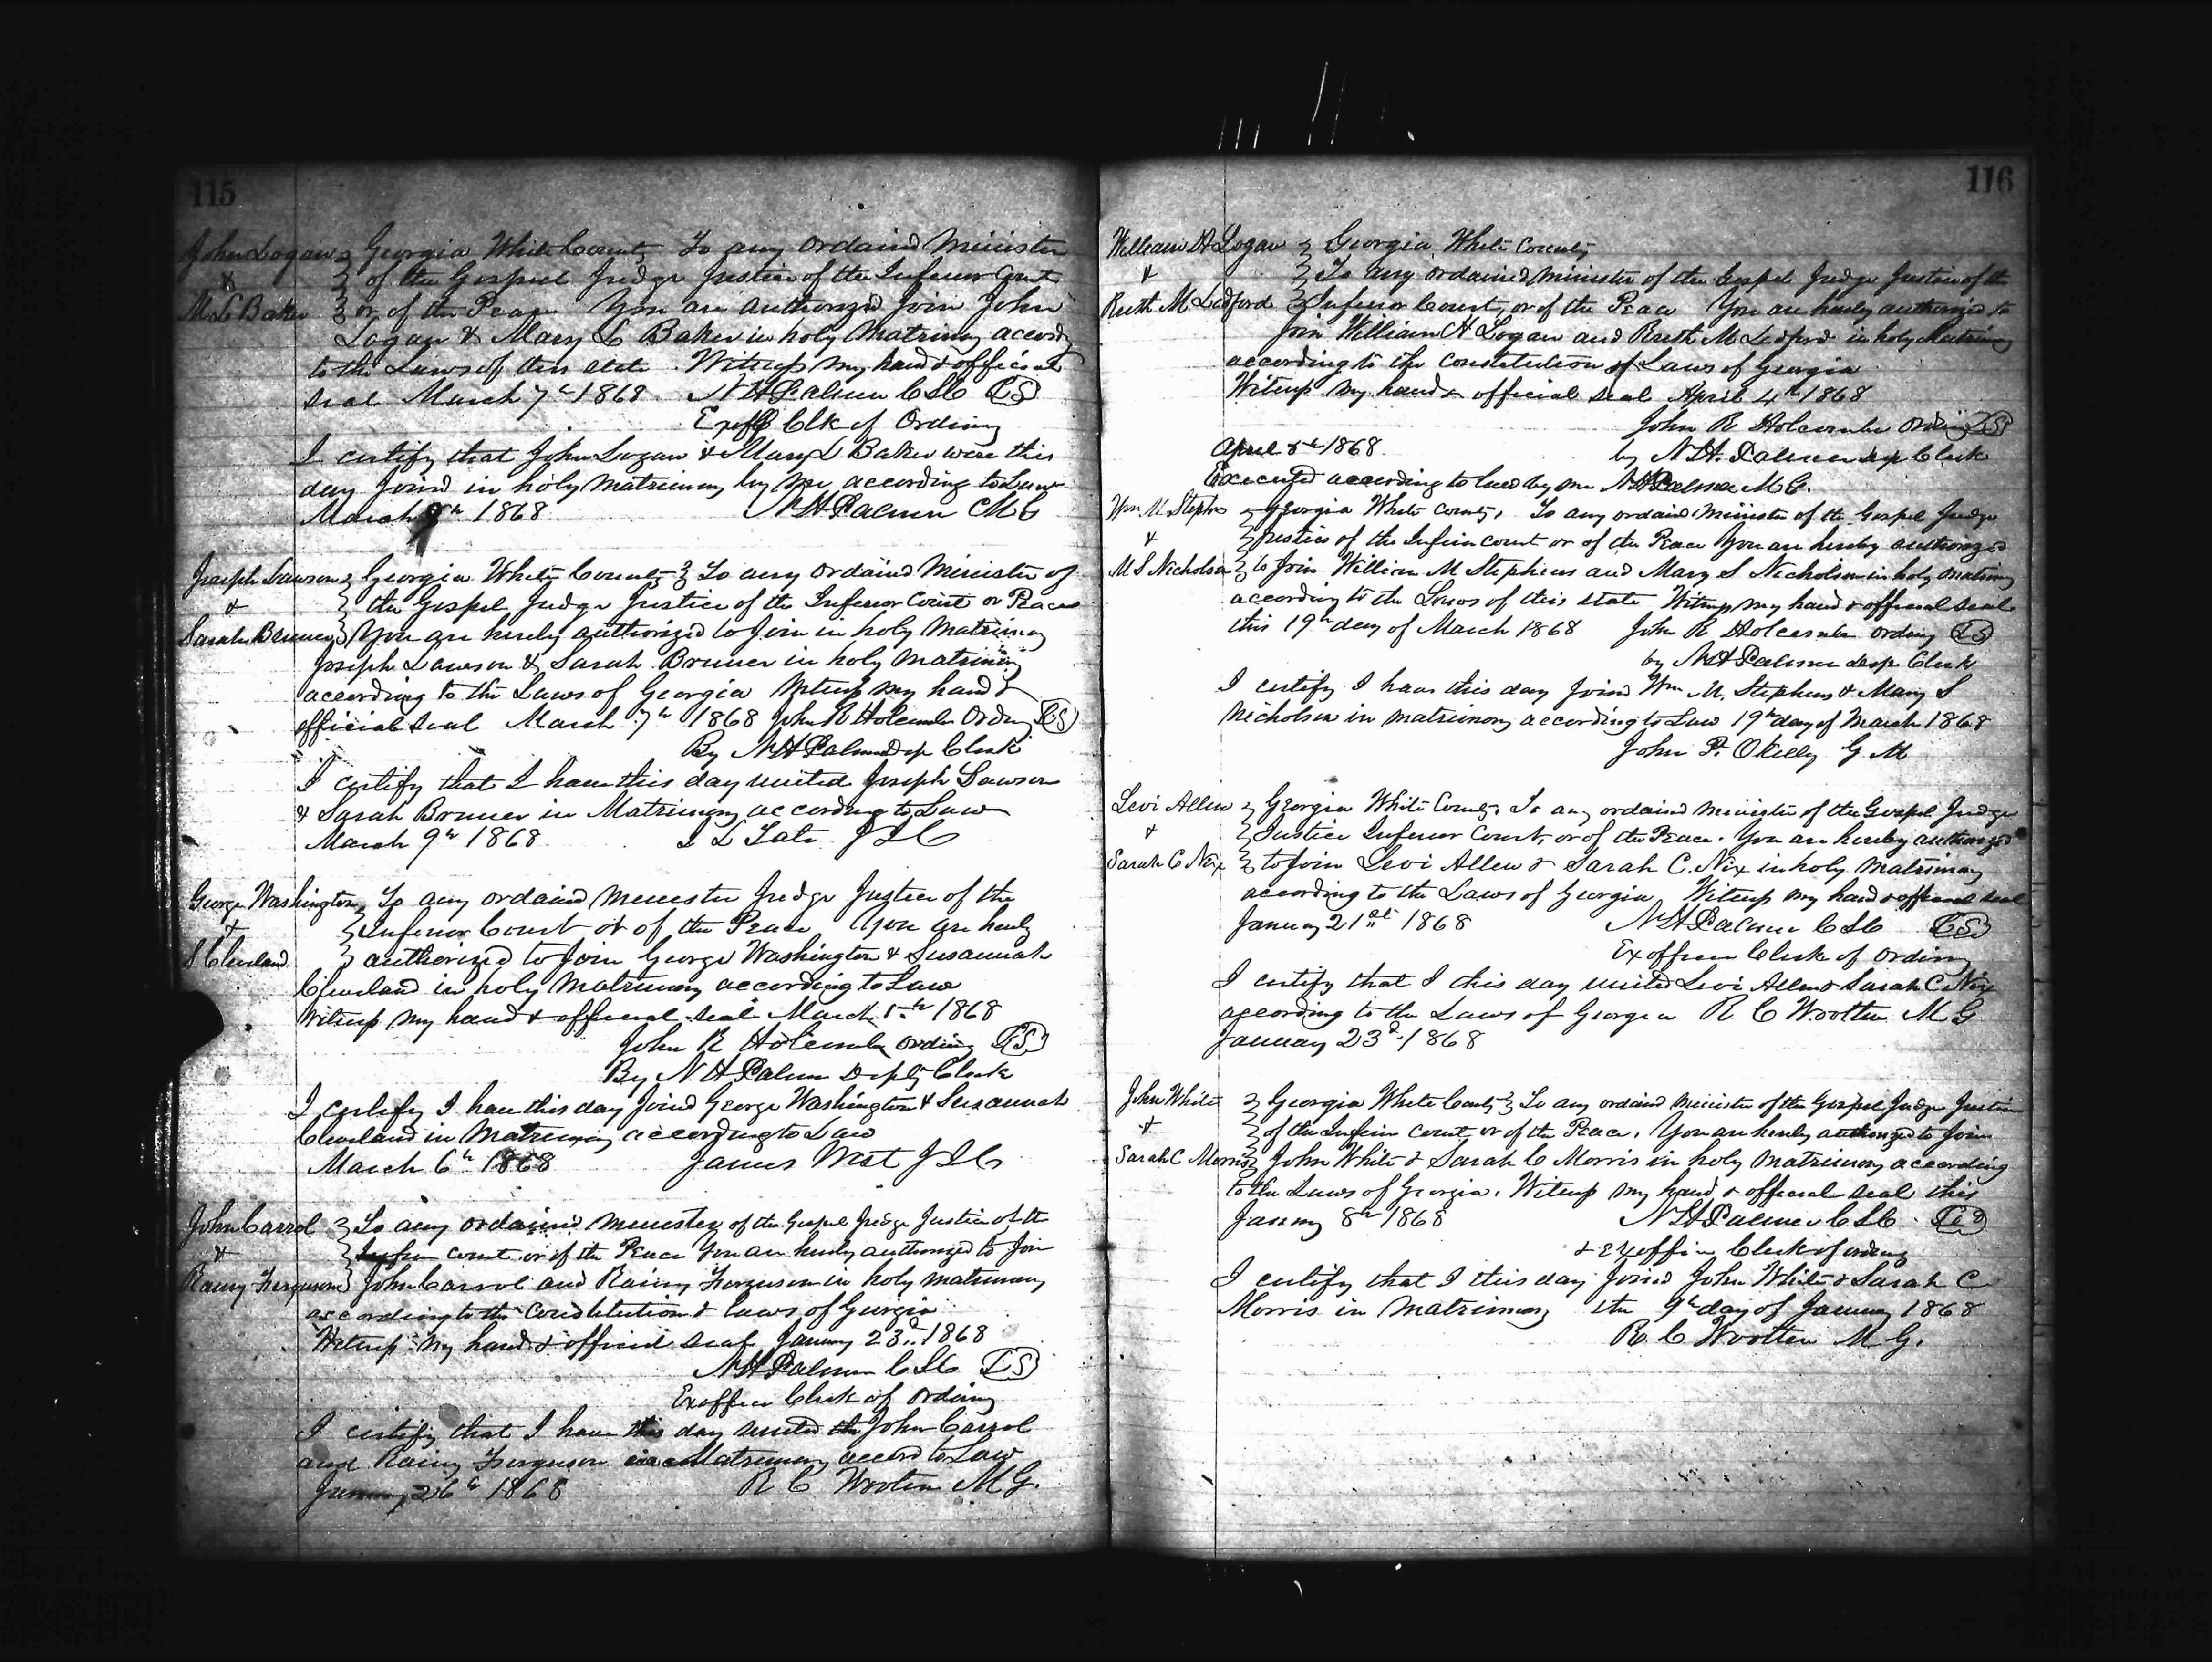 115
John Logan } Georgia White County To any ordaind Minister
& } of the Gospel Judge Justice of the Inferior Court
M L Baker } or of the Peace You are authorizd Join John
Logan & Mary L Baker in holy Matrimony accordg
to the Laws of this state. Witness my hand & official
seal March 7th 1868 N H Palmer C S C (LS)
Exoff Clk of Ordinary
I certify that John Logan & Mary L Baker were this
day Joind in holy Matrimony by me according to Law
March 8th 1868 N H Palmer M G
Joseph Lawson } Georgia White County } To any ordaind Minister of
& } the Gospel Judge Justice of the Inferior Court or Peace
Sarah Bruner } You are hereby authorized to Join in holy Matrimony
Joseph Lawson & Sarah Bruner in holy matrimony
according to the Laws of Georgia Witness my hand &
official seal March 7th 1868 John R Holcombe Ordiny (LS)
By N H Palmer dep Clerk
I certify that I have this day united Joseph Lawson
& Sarah Bruner in Matrimony according to Law
March 9th 1868 L Tate J I C
George Washington } To any ordaind Minister Judge Justice of the
& } Inferior Court or of the Peace You are herely
S Cleveland } authorized to Join George Washington & Susannah
Cleveland in holy Matrimony according to Law
Witness my hand & official seal March 5th 1868
John R Holcombe ordinary (LS)
By N H Palmer Deputy Clerk
I certify I have this day Joind George Washington & Susannah
Cleveland in Matrimony according to Law
March 6th 1868 James West J I C
John Carrol } To any ordaind Minister of the Gospel Judge Justice of the
& } Inferior court or of the Peace You are hereby authorized to Join
Rainy Ferguson } John Carrol and Rainy Ferguson in holy matrimony
according to the Constitution & laws of Georgia
Witness my hand & official seal January 23d 1868
N H Palmer C S C (LS)
Exofficer Clerk of Ordinary
I certify that I have this day united John Carrol
and Rainy Ferguson in Matrimony accord to Law
January 26th 1868 R C Wooten M G.
116
William H Logan } Georgia White County
& } To any ordained Minister of the Gospel Judge Justice of the
Ruth M Ledford } Inferior Court, or of the Peace You are hereby authorized to
Join William H Logan and Ruth M Ledford in holy Matrimony
according to the Constitution & Laws of Georgia
Witness my hand & official seal April 4th 1868
John R Holcombe Ordiny (LS)
April 5th 1868. by N H. Palmer dep Clerk
Executed according to law by me N H Palmer M G.
Wm M Stephns } Georgia White County, To any ordaind Minister of the Gospel Judge
& } Justice of the Inferior court or of the Peace You are hereby authorized
M S Nicholson } to Join William M Stephens and Mary S Nicholson in holy matrimony
according to the Laws of this state Witness my hand & official seal
this 19th day of March 1868 John R Holcombe ordiny (LS)
by N H Palmer dep. Clerk
I certify I have this day Joind Wm M. Stephens & Mary S
Nicholson in matrimony according to Law 19th day of March 1868
John P. OKelly G M
Levi Allen } Georgia White County. To any ordaind minister of the Gospel Judge
& } Justice Inferior Court, or of the Peace. You are hereby authorized
Sarah C Nix } to Join Levi Allen & Sarah C. Nix in holy matrimony
according to the Laws of Georgia Witness my hand & official seal
January 21st 1868 N H Palmer C S C (LS)
Exofficer Clerk of Ordinary
I certify that I this day united Levi Allen & Sarah C Nix
according to the Laws of Georgia R C Wootten M G
January 23d 1868
John White } Georgia White County } To any ordaind minister of the Gospel Judge Justice
& } of the Inferior Court or of the Peace. You are hereby authorized to Join
Sarah C Morris } John White & Sarah C Morris in holy matrimony according
to the Laws of Georgia. Witness my hand & official seal this
January 8th 1868 N H Palmer C S C. (LS)
& Exoffice Clerk of ordiny
I certify that I this day Joind John White & Sarah C
Morris in matrimony the 9th day of January 1868
R. C Wootten M G.